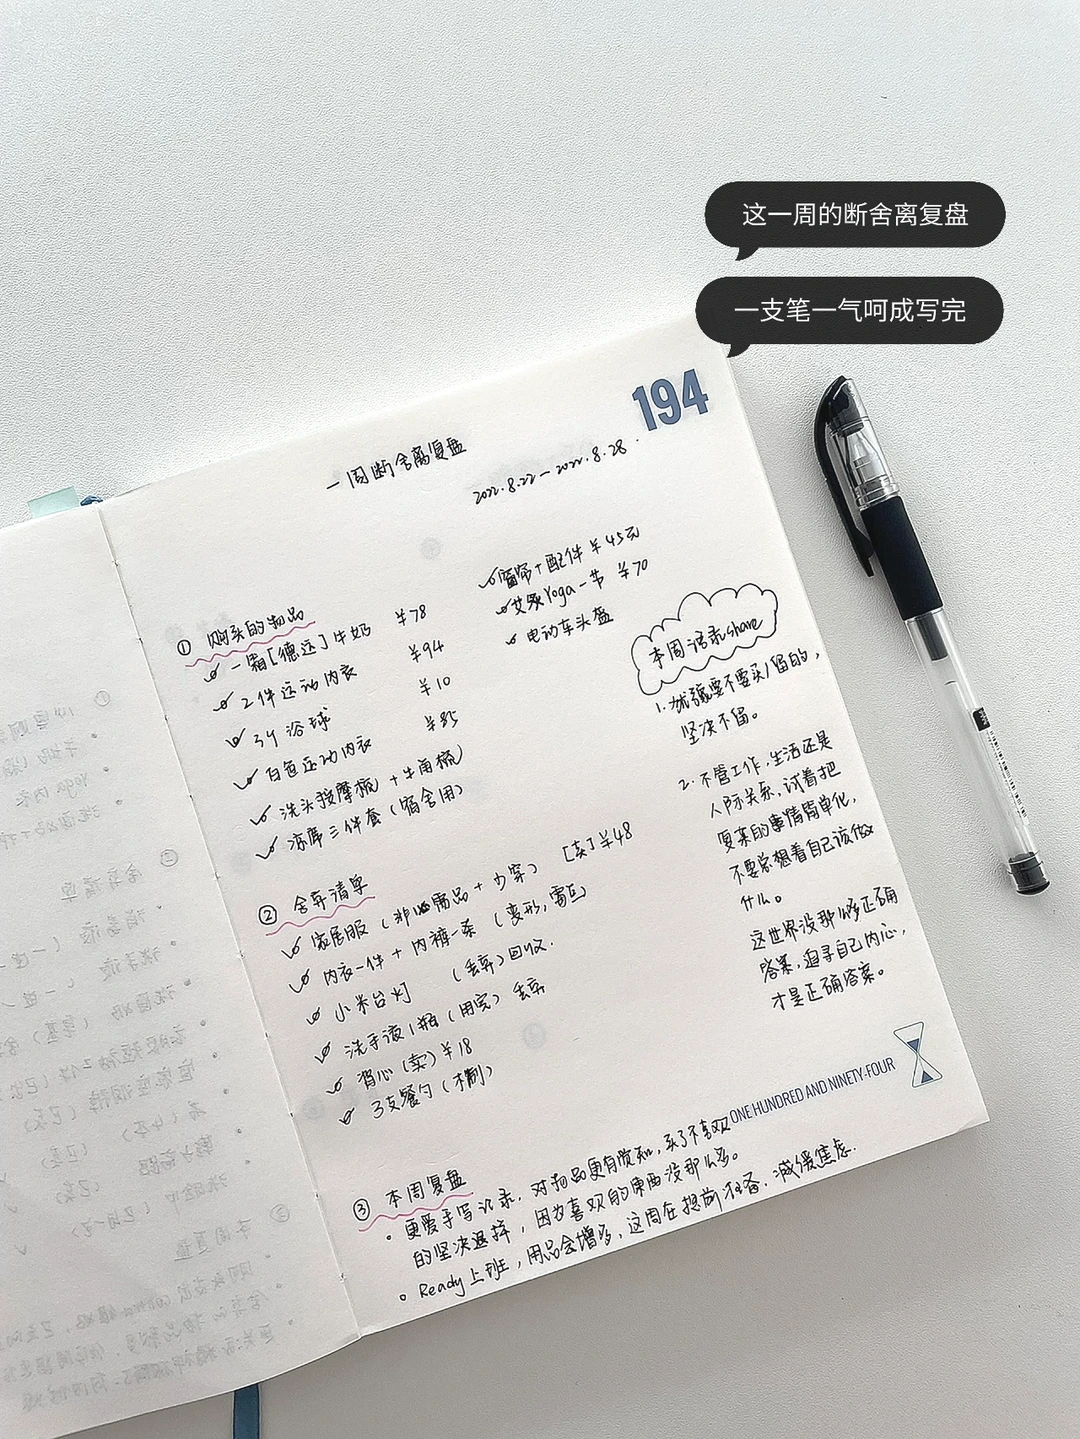 这一周的断舍离复盘
一支笔一气呵成写完
194
一周断舍离复盘
2022.8.22-2022.8.28.
① 购买的物品
一箱[德运]牛奶 ¥78
2件运动内衣 ¥94
3个浴球 ¥10
白色运动内衣 ¥85
洗头按摩梳+牛角梳
凉席三件套(宿舍用)
窗帘+配件 ¥45元
艾扬Yoga一节 ¥70
电动车头盔
② 舍弃清单
家居服(非必需品+少穿) [卖]¥48
内衣一件+内裤一条(变形,
小米台灯 (丢弃)回收.
洗手液1瓶(用完)丢弃
背心(卖)¥18
3支餐勺(木制)
本周语录share
1.犹豫要不要买/留的,
坚决不留。
2.不管工作,生活还是
人际关系,试着把
复杂的事情简单化,
不要总想着自己该做
什么。
这世界没那么多正确
答案,追寻自己内心,
才是正确答案。
ONE HUNDRED AND NINETY-FOUR
③ 本周复盘
• 更爱手写记录,对物品更有觉知,买了不喜欢
的坚决退掉,因为喜欢的东西没那么多。
• Ready上班,用品会增多,这周在提前准备.减缓焦虑.